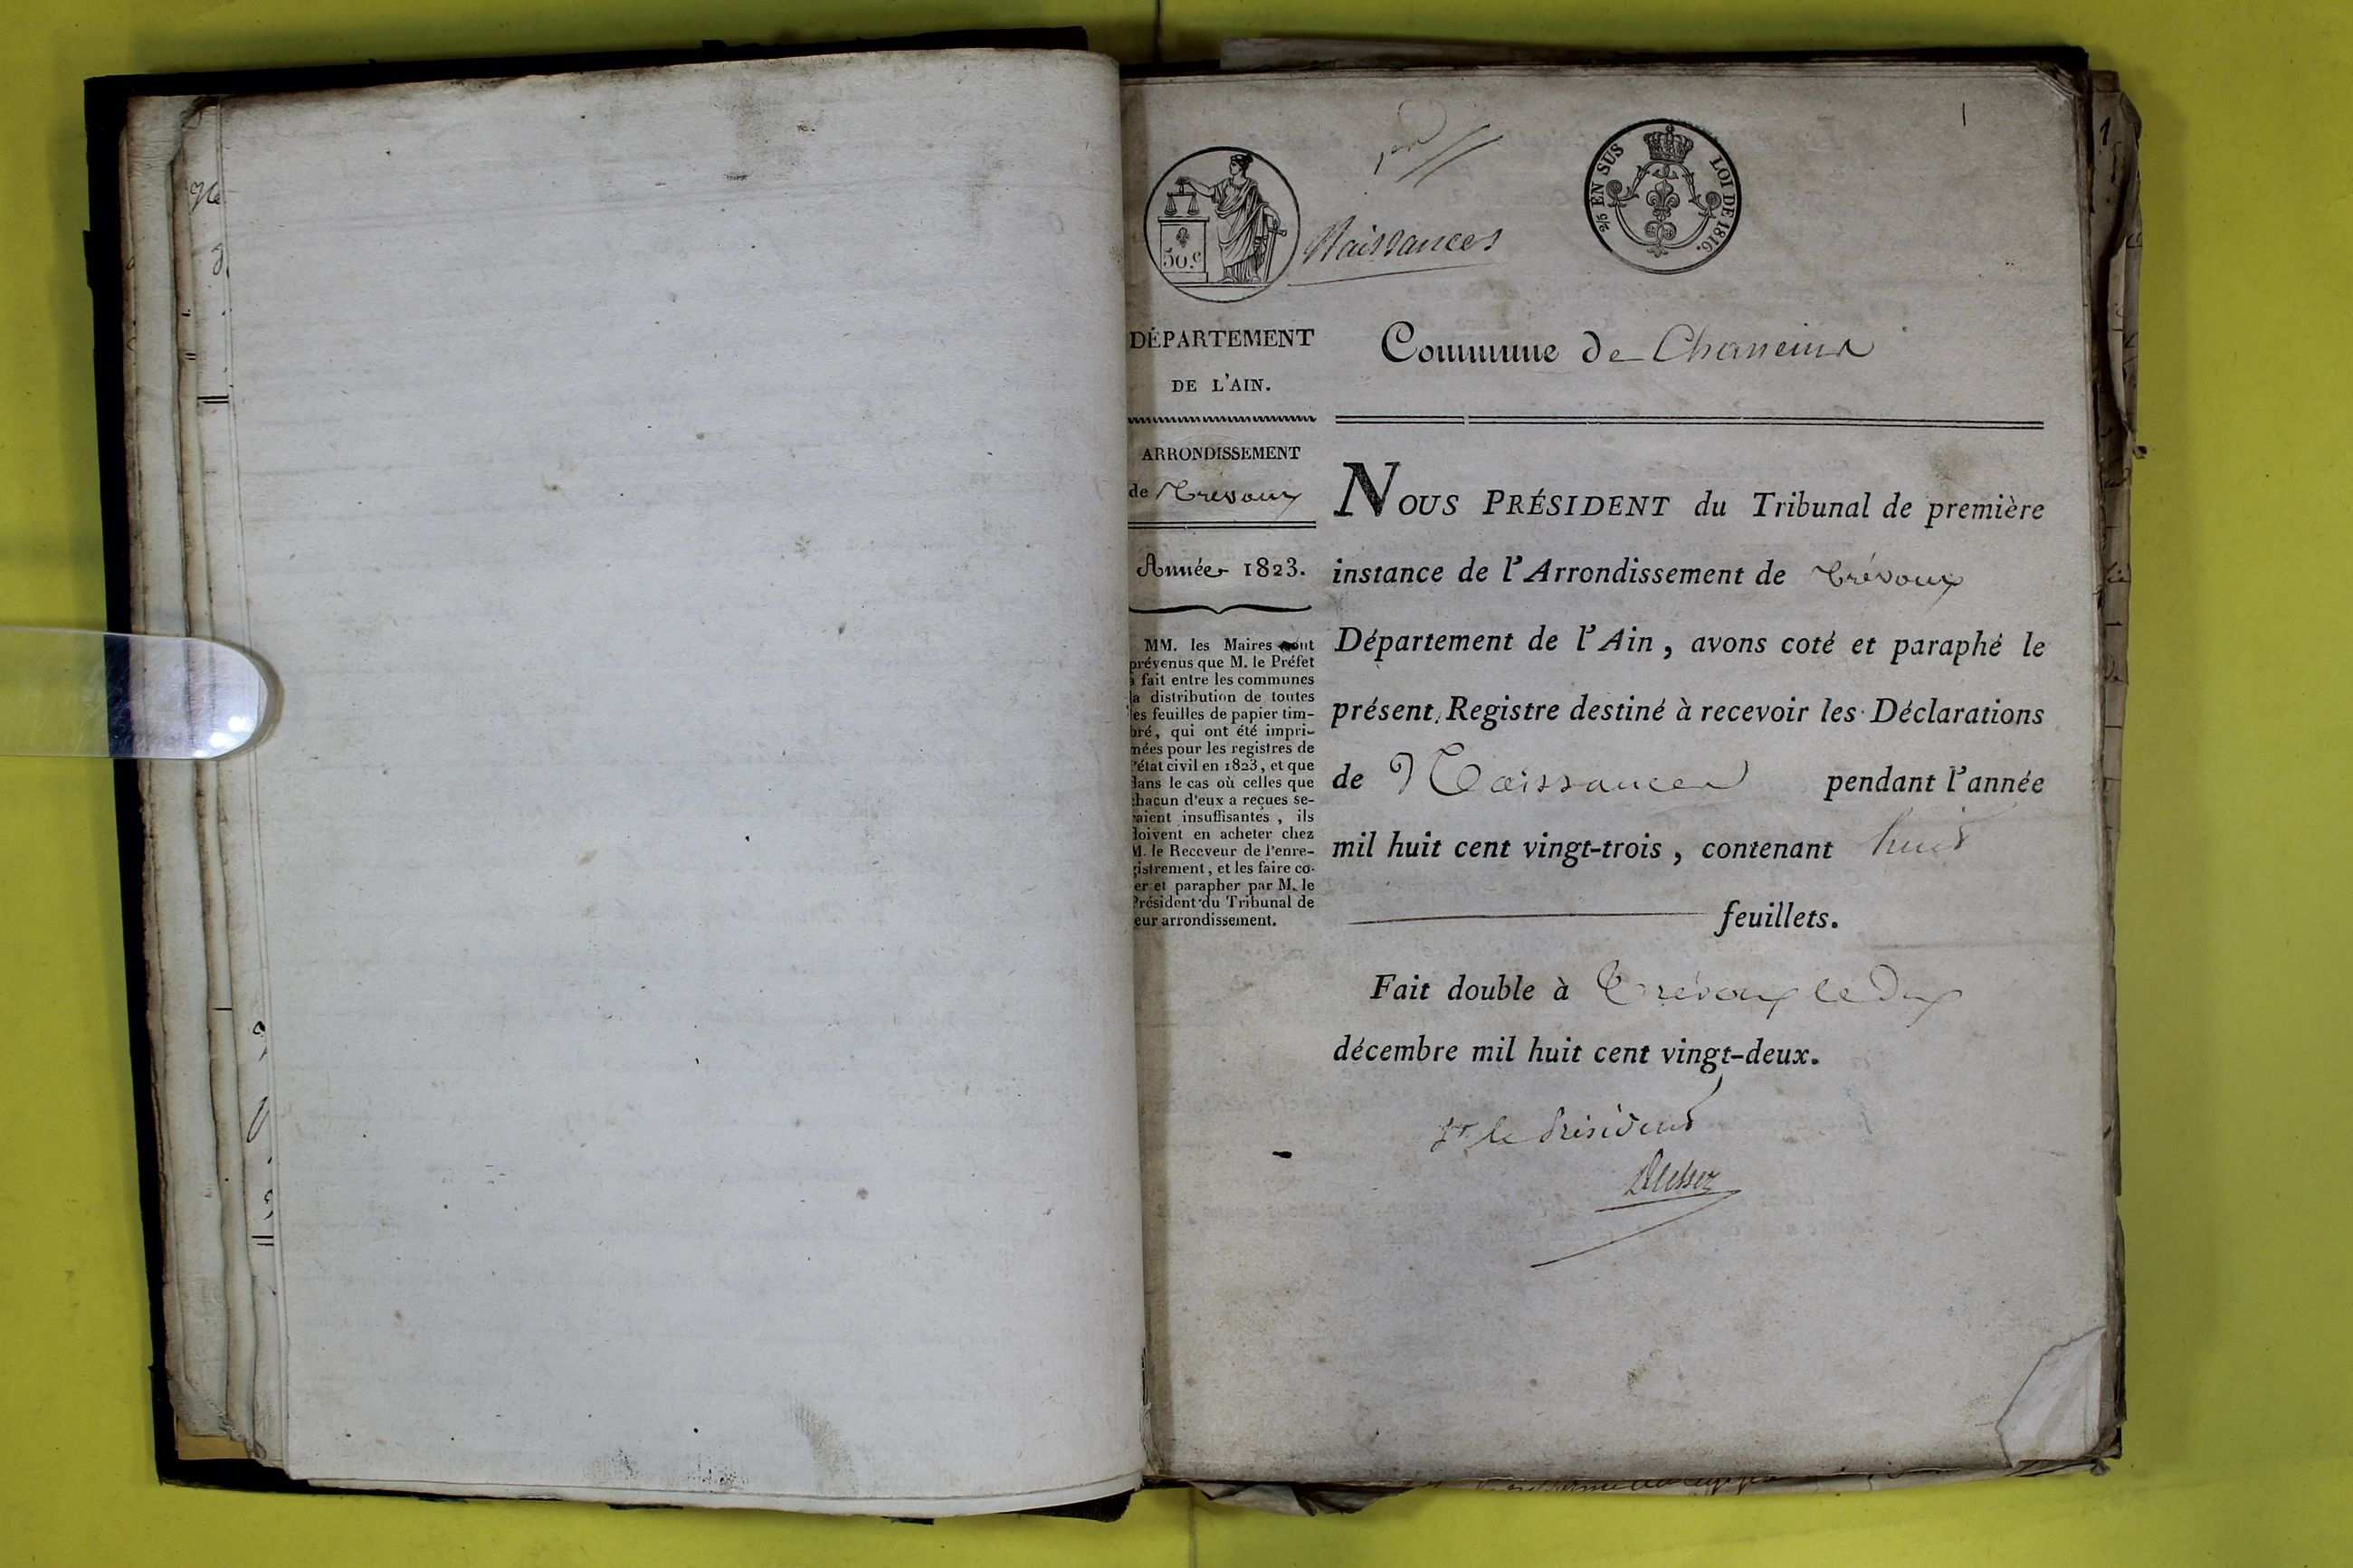 1
50.c
Naissances
2/5 EN SUS LOI DE 1816.
DÉPARTEMENT
DE L'AIN.
Commune de Chaneins
ARRONDISSEMENT
de Trévoux
Année 1823.
MM. les Maires sont
prévenus que M. le Préfet
a fait entre les communes
la distribution de toutes
les feuilles de papier tim-
bré, qui ont été impri-
mées pour les registres de
l'état civil en 1823, et que
dans le cas où celles que
chacun d'eux a reçues se-
raient insuffisantes, ils
doivent en acheter chez
M. le Receveur de l'enre-
gistrement, et les faire co-
ter et parapher par M. le
Président du Tribunal de
leur arrondissement.
NOUS PRÉSIDENT du Tribunal de première
instance de l'Arrondissement de Trévoux
Département de l'Ain, avons coté et paraphé le
présent Registre destiné à recevoir les Déclarations
de Naissances pendant l'année
mil huit cent vingt-trois, contenant huit
feuillets.
Fait double à Trévoux le Dix
décembre mil huit cent vingt-deux.
Pr le Président